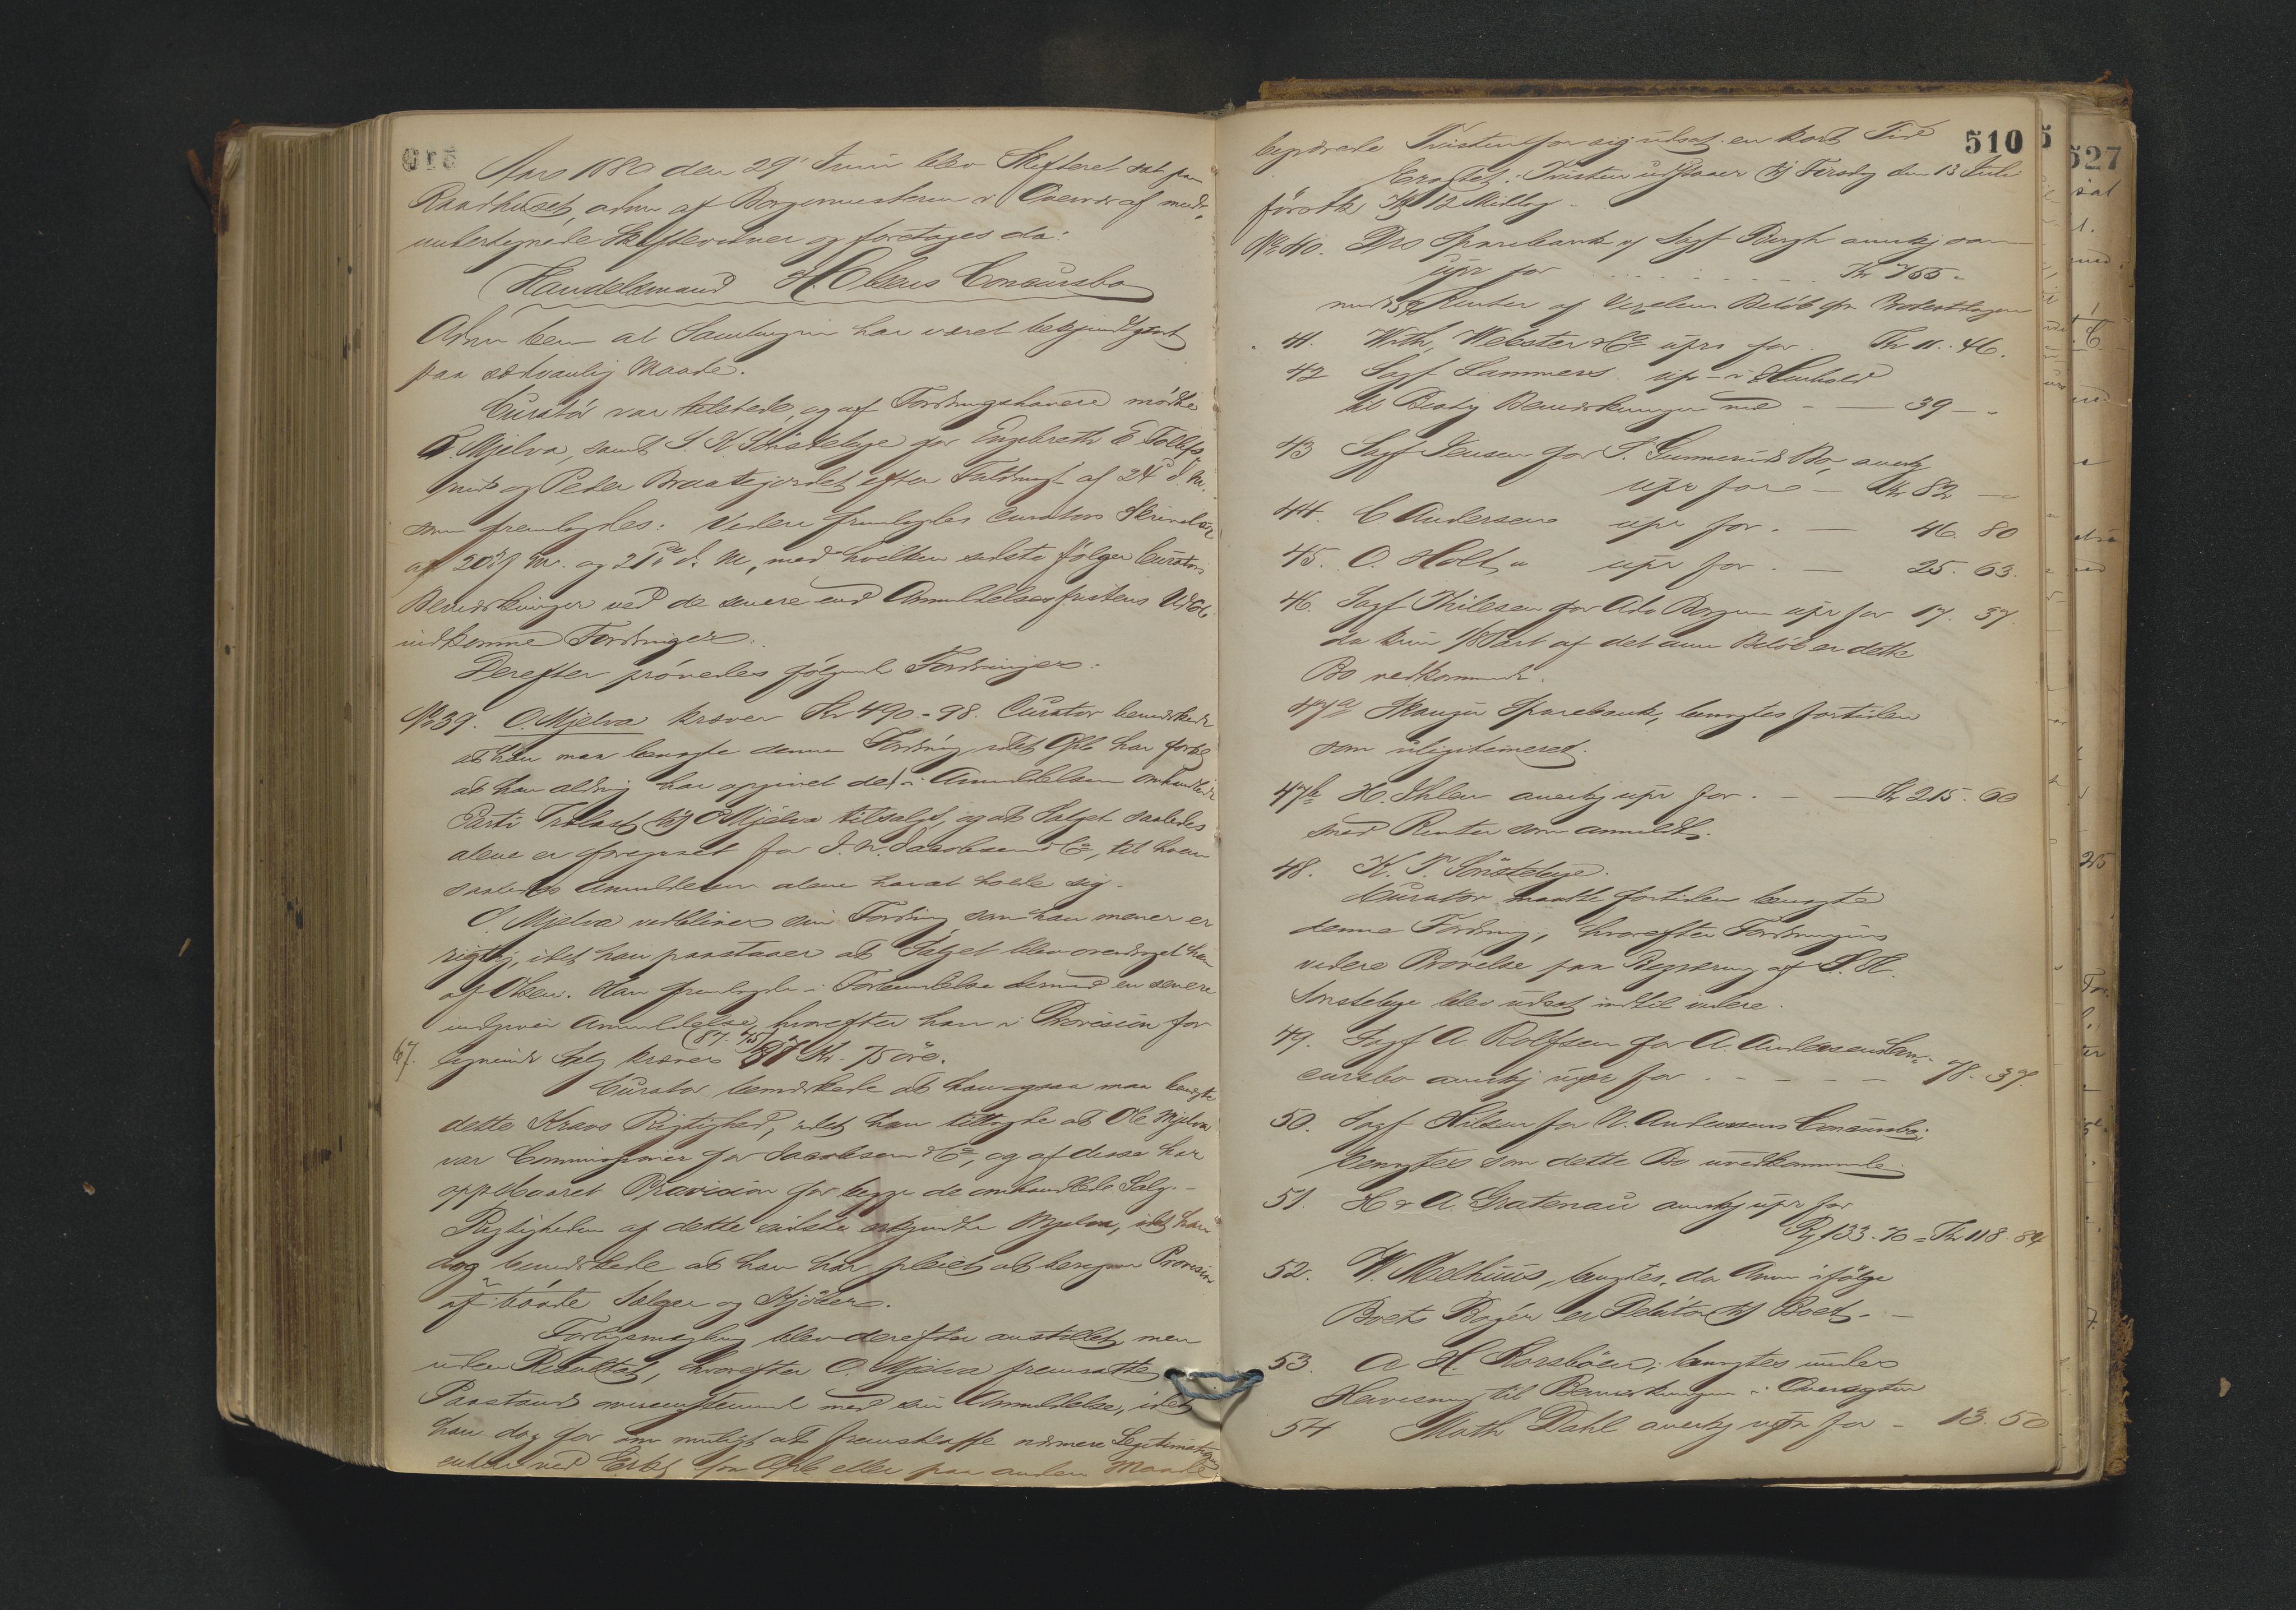 Aar 1880 den 29' Juni blev Skifteret sat paa
Raadhuset, adm af Borgermesteren i Overvær af med-
undertegnede Skiftevidner og foretages da:
Handelsmand H. Olsens Concursbo
Adm bem at Samlingen har været bekjendtgjort
paa sædvanlig Maade.
Curator var tilstede, og af Fordringshavere mødte
O. Mjelva, samt S. H. Sønsteby for Engebreth E Tollefs-
rud og Peder Braatejordet efter Fuldmagt af 24 d. M.
som fremlagdes. Videre fremlagdes Curators Skrivelser
af 20 f. M. og 21 d. M, med hvilken sidste følger Curators
Bemærkninger ved de senere end Anmeldelsesfristens Udløb
indkomne Fordringer.
Derefter prøvedes følgende Fordringer:
No 39. O. Mjelva kræver Kr 490-98. Curator bemærkede
at han maa benægte denne Fordring idet Opb har forkl
at han aldrig har opgivet det i Anmeldelsen omhandlede
Parti Trælast til O Mjelva tilsalgs, og at Salget saaledes
alene er foregaaet for J. N. Jacobsen & Co, til hvem
saaledes Anmelderen alene har at holde sig.
O. Mjelva vedbliver sin Fordring, som han mener er
rigtig, idet han paastaaer at Salget blev overdraget ham
af Olsen. Han fremlagde i Forbindelse dermed en senere
indgiven Anmeldelse, hvorefter han i Provision for
67. lignende Salg kræver (87.75) 87 Kr. 75 øre.
Curator bemærkede at han ogsaa maa benægte
dette Kravs Rigtighed, idet han tillagde at Ole Mjelva
var Commissionær for Jacobsen & Co, og af disse har
oppebaaret Provision for begge de omhandlede Salg.
Rigtigheden af dette sidste erkjendte Mjelva, idet han
dog bemærkede at han har pleiet at beregne Provision
af baade Sælger og Kjøber.
Forligsmægling blev derefter anstillet, men
uden Resultat, hvorefter O. Mjelva fremsatte
Paastand overensstemmende med sin Anmeldelse, idet
han dog for om muligt at fremskaffe nærmere Legitimation
enten ved Erkl fra Opb eller paa anden Maade
510
begjærede Tvisten for sig udsat en kort Tid
Eragtet: Tvisten udstaaer til Tirsdag den 13 Juli
førstk Kl 12 Middag.
No 40. Drs Sparebank v Sagf Bergh anerkj som
upr for Kr 755 -
med Renter af Vexelens Beløb fra Protestdagen
41. With, Webster & Co upr for Kr 11. 46.
42 Sagf Lammers upr i Henhold
til Bestyr Bemærkninger med 39 -
43 Sagf Jensen for S. Gunneruds Bo, anerkj
upr for Kr 82 -
44. C Andersen upr for 46. 80
45. O. Holt " upr for 25. 63.
46. Sagf Thilesen for Ado Borgen upr for 17. 37.
da kun 1/8 Part af det anm Beløb er dette
Bo vedkommende.
47a Skauger Sparebank, benægtes fortiden
som ulegitimeret.
47b H. Ihlen anerkj upr for Kr 215. 60
med Renter som anmeldt.
48. H. P. Sønsteby.
Curator maatte fortiden benægte
denne Fordring, hvorefter Fordringens
videre Prøvelse paa Begjæring af S. H.
Sønsteby blev udsat indtil videre.
49. Sagf A. Rolfsen for A. Andersens Con-
cursbo anerkj upr for 78. 37.
50. Sagf Hilsen for N. Andersens Concursbo;
benægtes som dette Bo uvedkommende
51. H & A. Gratenau anerkj upr for
Rm 133. 70 = Kr 118. 84
52. W. Melhuus, benægtes, da Anm ifølge
Boets Bøger er Debitor til Boet.
53. A H. Korsbøen; benægtes under
Henvisning til Bemærkningen i Oversigten
54 Math Dahl anerkj upr for 13. 50
527